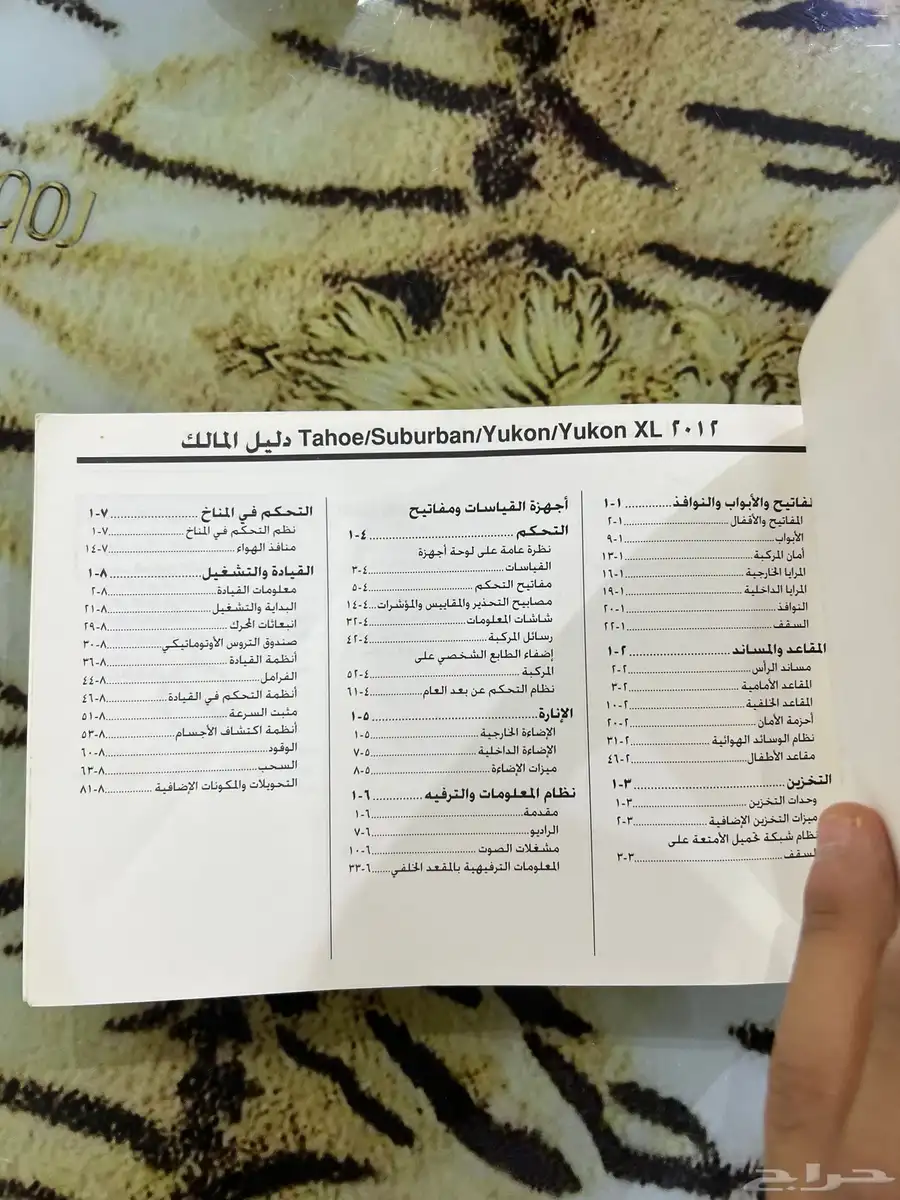 ٢٠١٢ Tahoe/Suburban/Yukon/Yukon XL دليل المالك
لمفاتيح والأبواب والنوافذ............ ١-١
المفاتيح والأقفال............ ١-٢
الأبواب............ ١-٩
أمان المركبة............ ١-١٣
المرايا الخارجية............ ١-١٦
المرايا الداخلية............ ١-١٩
النوافذ............ ١-٢٠
السقف............ ١-٢٢
المقاعد والمساند............ ٢-١
مساند الرأس............ ٢-٢
المقاعد الأمامية............ ٢-٣
المقاعد الخلفية............ ٢-١٠
أحزمة الأمان............ ٢-٢٠
نظام الوسائد الهوائية............ ٢-٣١
مقاعد الأطفال............ ٢-٤٦
التخزين............ ٣-١
وحدات التخزين............ ٣-١
ميزات التخزين الإضافية............ ٣-٢
نظام شبكة تحميل الأمتعة على
السقف............ ٣-٣
أجهزة القياسات ومفاتيح
التحكم............ ٤-١
نظرة عامة على لوحة أجهزة
القياسات............ ٤-٣
مفاتيح التحكم............ ٤-٥
مصابيح التحذير والمقاييس والمؤشرات...٤-١٤
شاشات المعلومات............ ٤-٣٢
رسائل المركبة............ ٤-٤٢
إضفاء الطابع الشخصي على
المركبة............ ٤-٥٢
نظام التحكم عن بعد العام............ ٤-٦١
الإنارة............ ٥-١
الإضاءة الخارجية............ ٥-١
الإضاءة الداخلية............ ٥-٧
ميزات الإضاءة............ ٥-٨
نظام المعلومات والترفيه............ ٦-١
مقدمة............ ٦-١
الراديو............ ٦-٧
مشغلات الصوت............ ٦-١٠
المعلومات الترفيهية بالمقعد الخلفي......٦-٣٣
التحكم في المناخ............ ٧-١
نظم التحكم في المناخ............ ٧-١
منافذ الهواء............ ٧-١٤
القيادة والتشغيل............ ٨-١
معلومات القيادة............ ٨-٢
البداية والتشغيل............ ٨-٢١
انبعاثات المحرك............ ٨-٢٩
صندوق التروس الأوتوماتيكي............ ٨-٣٠
أنظمة القيادة............ ٨-٣٦
الفرامل............ ٨-٤٤
أنظمة التحكم في القيادة............ ٨-٤٦
مثبت السرعة............ ٨-٥١
أنظمة اكتشاف الأجسام............ ٨-٥٣
الوقود............ ٨-٦٠
السحب............ ٨-٦٣
التحويلات والمكونات الإضافية............ ٨-٨١
حراج